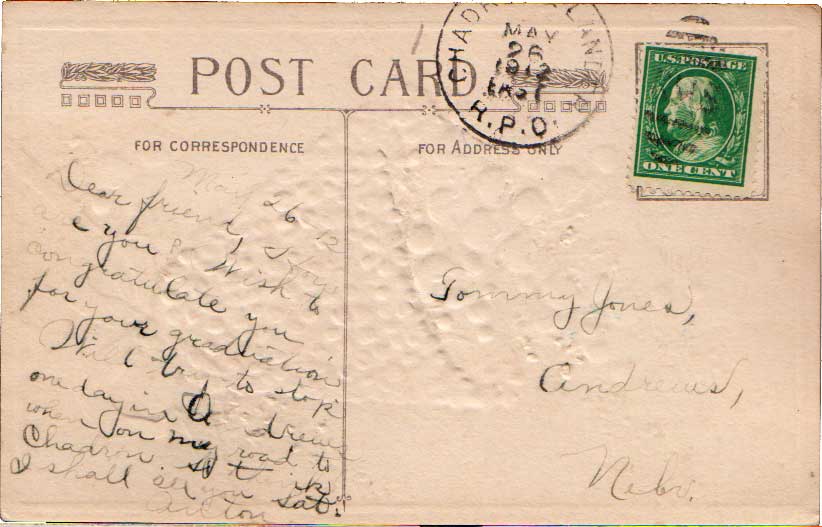 CHADRON LAND
MAY
26
1912
R.P.O.
POST CARD
U.S. POSTAGE
ONE CENT
FOR CORRESPONDENCE
FOR ADDRESS ONLY
May 26 12
Dear friend,
a e you Wish to
congratulate you
for your graduation
Will try to stop
one day in Andrews
when on my road to
Chadron. I think
I shall see you Sat.
Tommy Jones,
Andrews,
Nebr.